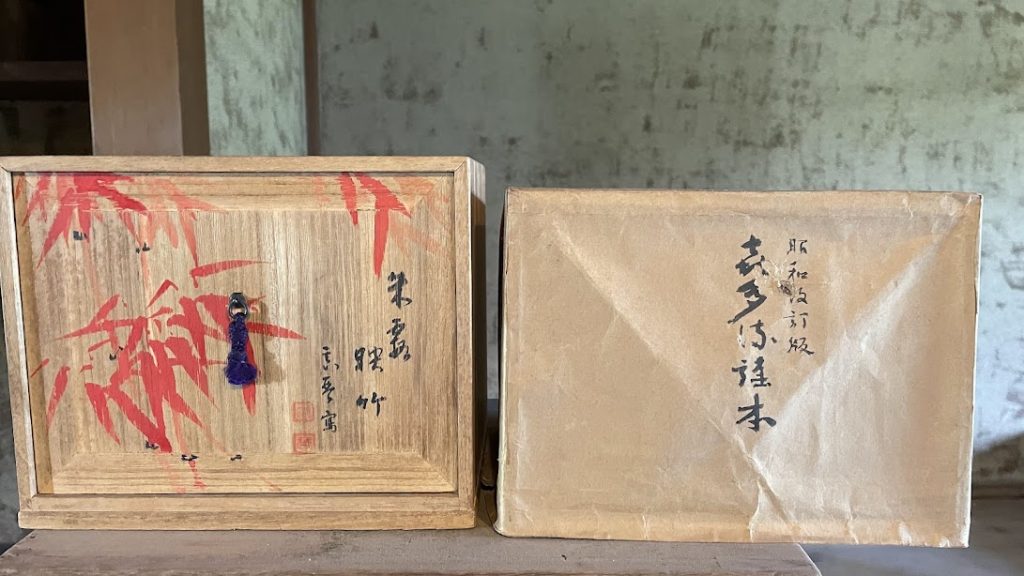 朱霞
映竹
寫
昭和改訂版
喜多流謡本